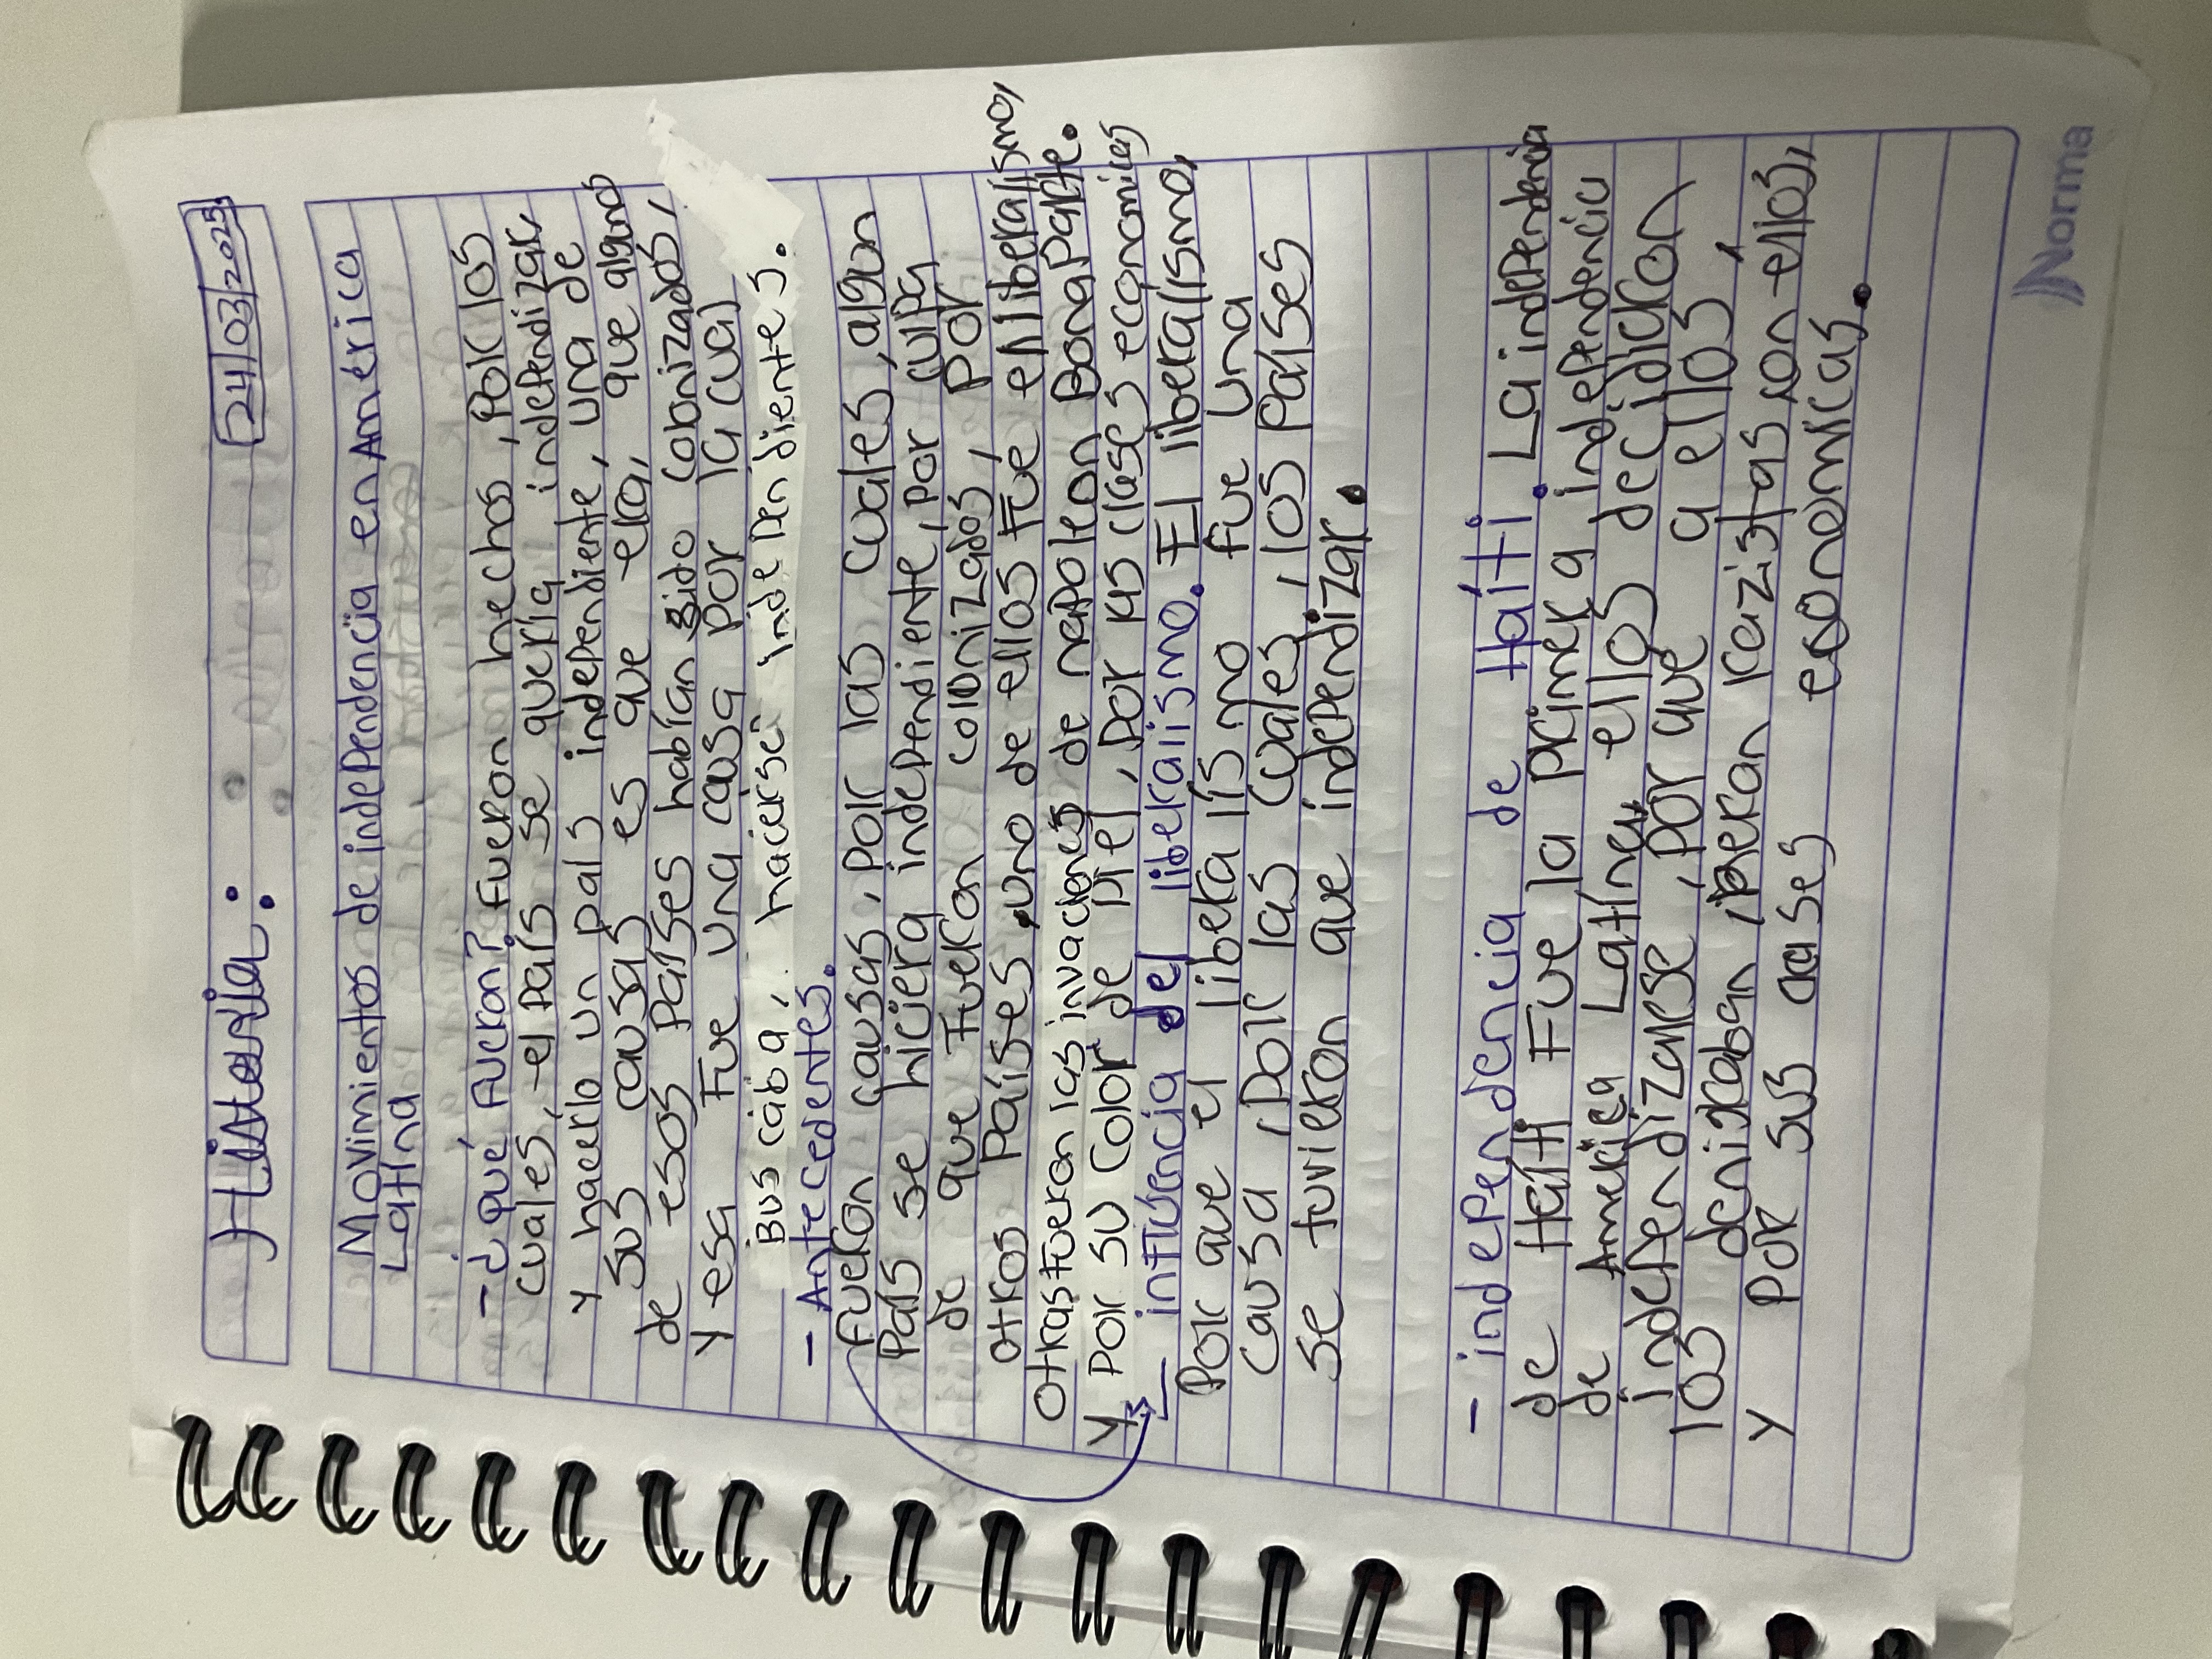 Historia:
24/03/2025.
Movimientos de independencia en América
Latina
- ¿qué fueron? Fueron hechos, por los
cuales, el país se quería independizar,
y hacerlo un país independiente, una de
sus causas es que ella, que algunos
de esos países habían sido colonizados,
y esa fue una causa por la cual
buscaba, hacerse independientes.
- Antecedentes.
fueron causas, por las cuales, algun
país se hiciera independiente, por culpa
de que fueron colonizados, por
otros países, uno de ellos fue el liberalismo,
otras fueron las invaciones de napoleon Bonaparte.
y por su color de piel, por sus clases economicas
- influencia del liberalismo. El liberalismo,
Por que el liberalismo fue una
causa, por las cuales, los países
se tuvieron que independizar.
- independencia de Haíti. La independencia
de Haíti fue la primera independencia
de América Latína, ellos decidieron
independizarse, por que a ellos,
los denigraban, eran razistas con ellos,
y por sus clases económicas.
Norma